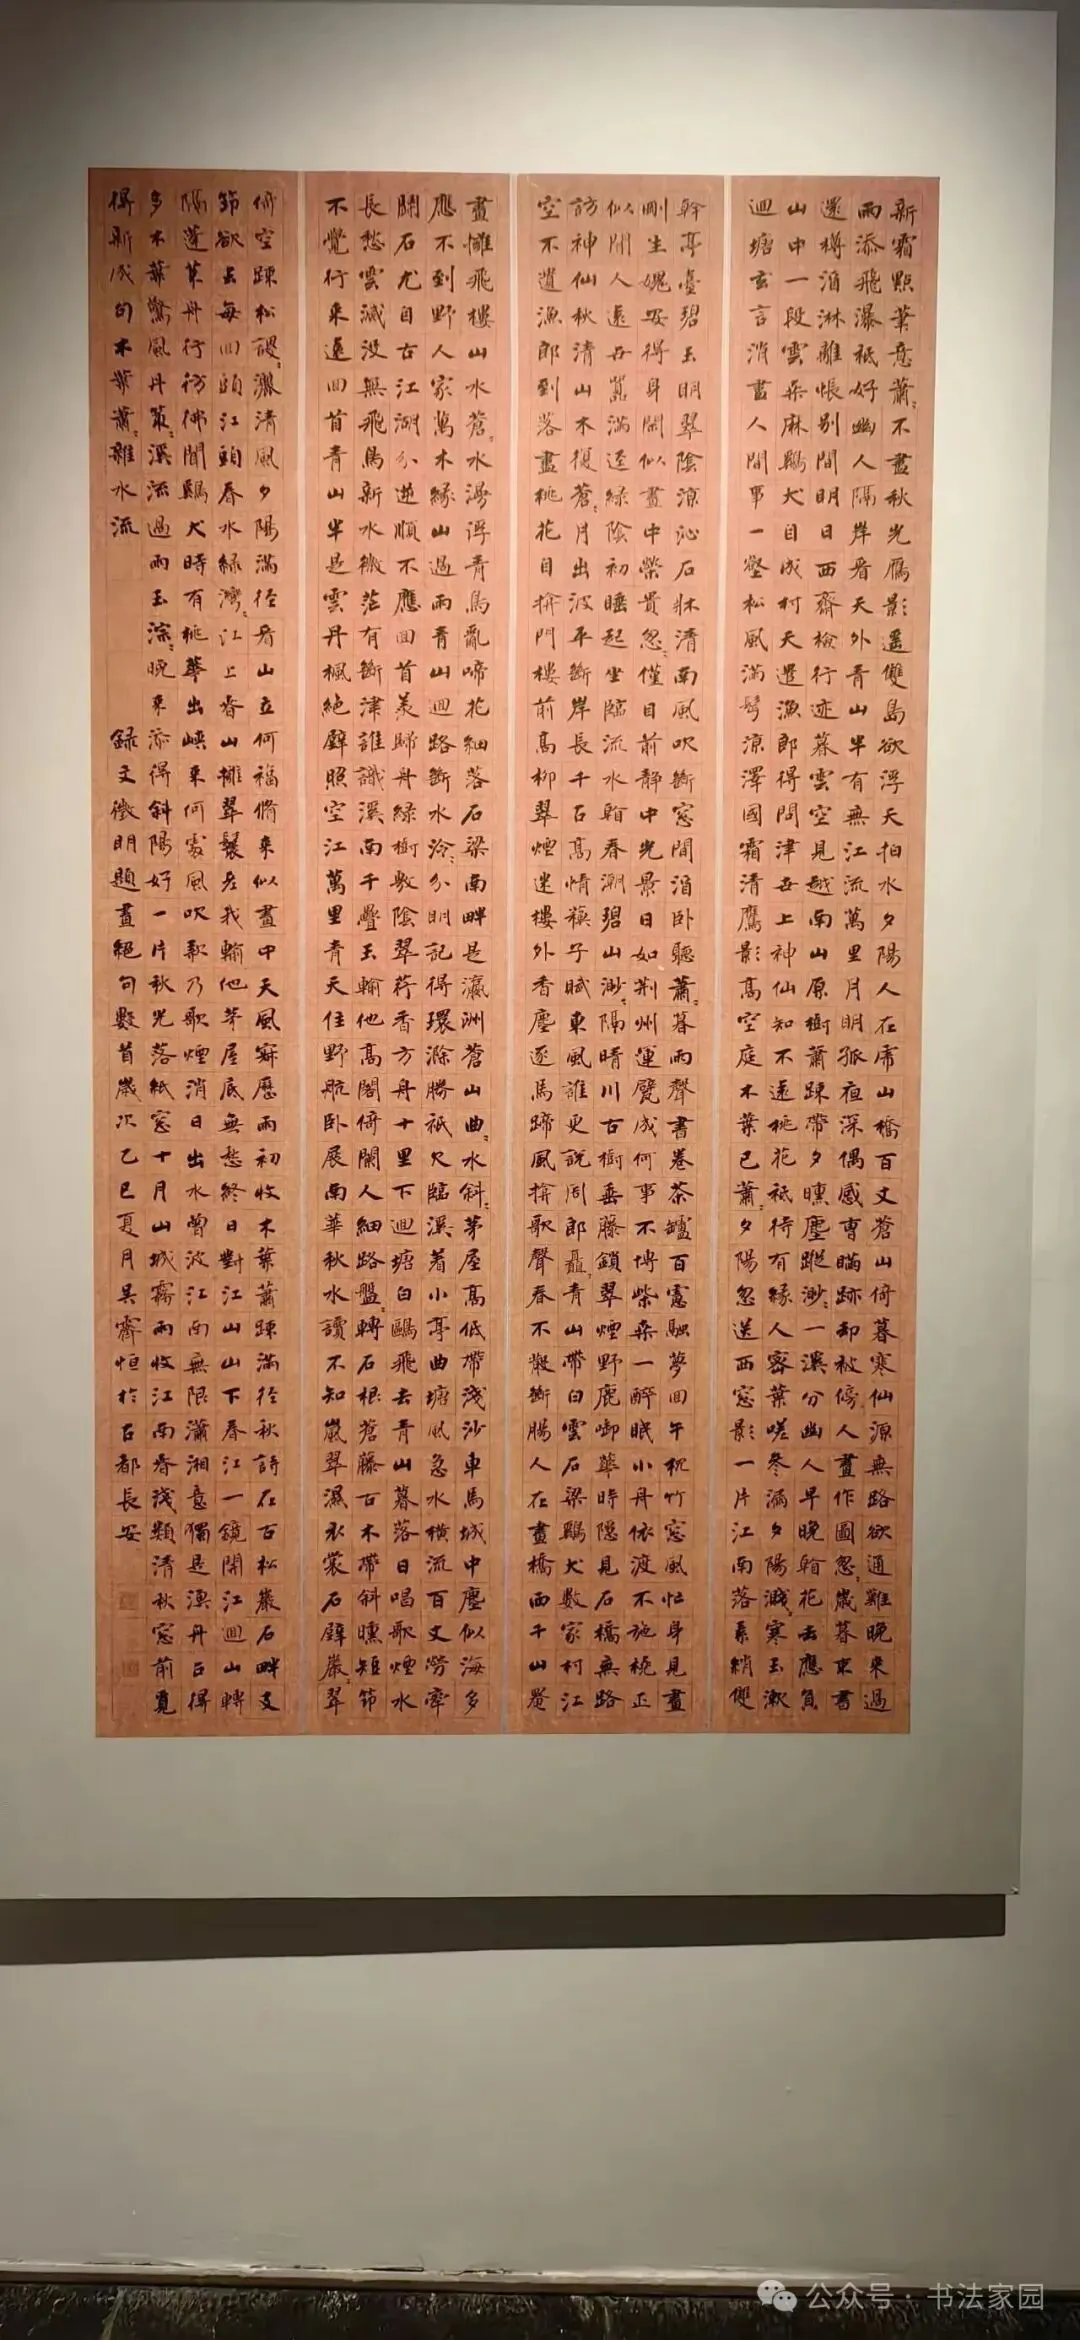 新霜點葉意蕭〻不盡秋光雁影遥雙島欲浮天拍水夕陽人在虎山橋百丈蒼山倚暮寒仙源無路欲通難晚來過
雨添飛瀑祇好幽人隔岸看天外青山半有無江流萬里月明孤夜深偶感曹瞞跡却被傍人畫作圖忽〻歲暮東書
還樽酒淋離悵別間明日西齋檢行迹暮雲空見越南山原樹蕭踈帶夕曛塵蹤渺〻一溪分幽人早晚看花去應負
山中一段雲桑麻鷄犬自成村天遣漁郎得問津世上神仙知不遠桃花祇待有緣人密葉嗟冬漏夕陽濺〻寒玉漱
迴塘玄言消盡人間事一壑松風滿鬢涼澤國霜清鷹影高空庭木葉已蕭〻夕陽忽送西窓影一片江南落素綃雙
幹亭臺碧玉明翠陰涼沁石牀清南風吹斷窓間酒卧聽蕭〻暮雨聲書卷茶罏百慮融夢回午枕竹窓風忙身見畫
刪生媿安得身閑似畫中榮貴忽〻僅目前靜中光景日如荆州運甓成何事不博柴桑一醉眠小舟依渡不施橈正
似閒人遠世囂滿逕緑陰初睡起坐臨流水看春潮碧山渺〻隔晴川古樹垂藤鎖翠煙野鹿啣華時隱見石橋無路
訪神仙秋清山木復蒼〻月出波平斷岸長千古高情蘓子賦東風誰更說周郎矗〻青山帶白雲石梁鷄犬數家村江
空不遣漁郎到落盡桃花自揜門樓前高柳翠煙迷樓外香塵逐馬蹄風揜歌聲春不散斷腸人在畫橋西千山罨
畫幨飛樓山水蒼〻水漫浮青鳥亂啼花細落石梁南畔是瀛洲蒼山曲〻水斜〻茅屋高低帶淺沙車馬城中塵似海多
應不到野人家萬木緣山過雨青山迴路斷水泠〻分明記得環滁勝祇欠臨溪着小亭曲塘風急水橫流百丈勞牽
關石尤自古江湖分逆順不應回首羨歸舟緑樹敷陰翠荇香方舟十里下迴塘白鷗飛去青山暮落日唱歌煙水
長愁雲滅没無飛鳥新水微茫有斷津誰識溪南千疊玉輸他高閣倚闌人細路盤〻轉石根蒼藤古木帶斜曛短筇
不覺行來遠回首青山半是雲丹楓絶壁照空江萬里青天住野航卧展南華秋水讀不知嵐翠濕衣裳石壁巖〻翠
倚空踈松謖〻濃清風夕陽滿徑看山立何福脩來似畫中天風寂歷雨初收木葉蕭踈滿徑秋詩在古松巖石畔支
筇欲去每回頭江頭春水緑灣〻江上春山擁翠鬟老我輸他茅屋底無愁終日對江山山下春江一鏡開江迴山轉
隔蓬萊舟行彷彿聞鷄犬時有桃華出峽來何處風吹欵乃歌煙消日出水曾波江南無限瀟湘意獨是漁舟占得
多木葉驚風丹策〻溪流過雨玉淙〻晚來添得斜陽好一片秋光落紙窓十月山城霧雨收江南春淺類清秋窓前覓
得新成句木葉蕭〻雜水流
錄文徵明題畫絕句數首歲次乙巳夏月吴霽恒於古都長安
公众号·书法家园